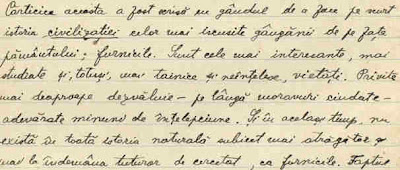 Carticica aceasta a fost scrisă cu gândul de a face pe scurt
istoria civilizației celor mai iscusite gângănii de pe fața
pământului; furnicile. Sunt cele mai interesante, mai
studiate și, totuși, mai tainice și neînțelese, vietăți. Privite
mai deaproape dezvăluie – pe lângă moravuri ciudate –
adevărate minuni de înțelepciune. Și în acelaș timp, nu
există în toată istoria naturală subiect mai atrăgător și
mai la îndemâna tuturor de cercetat, ca furnicile. Faptul